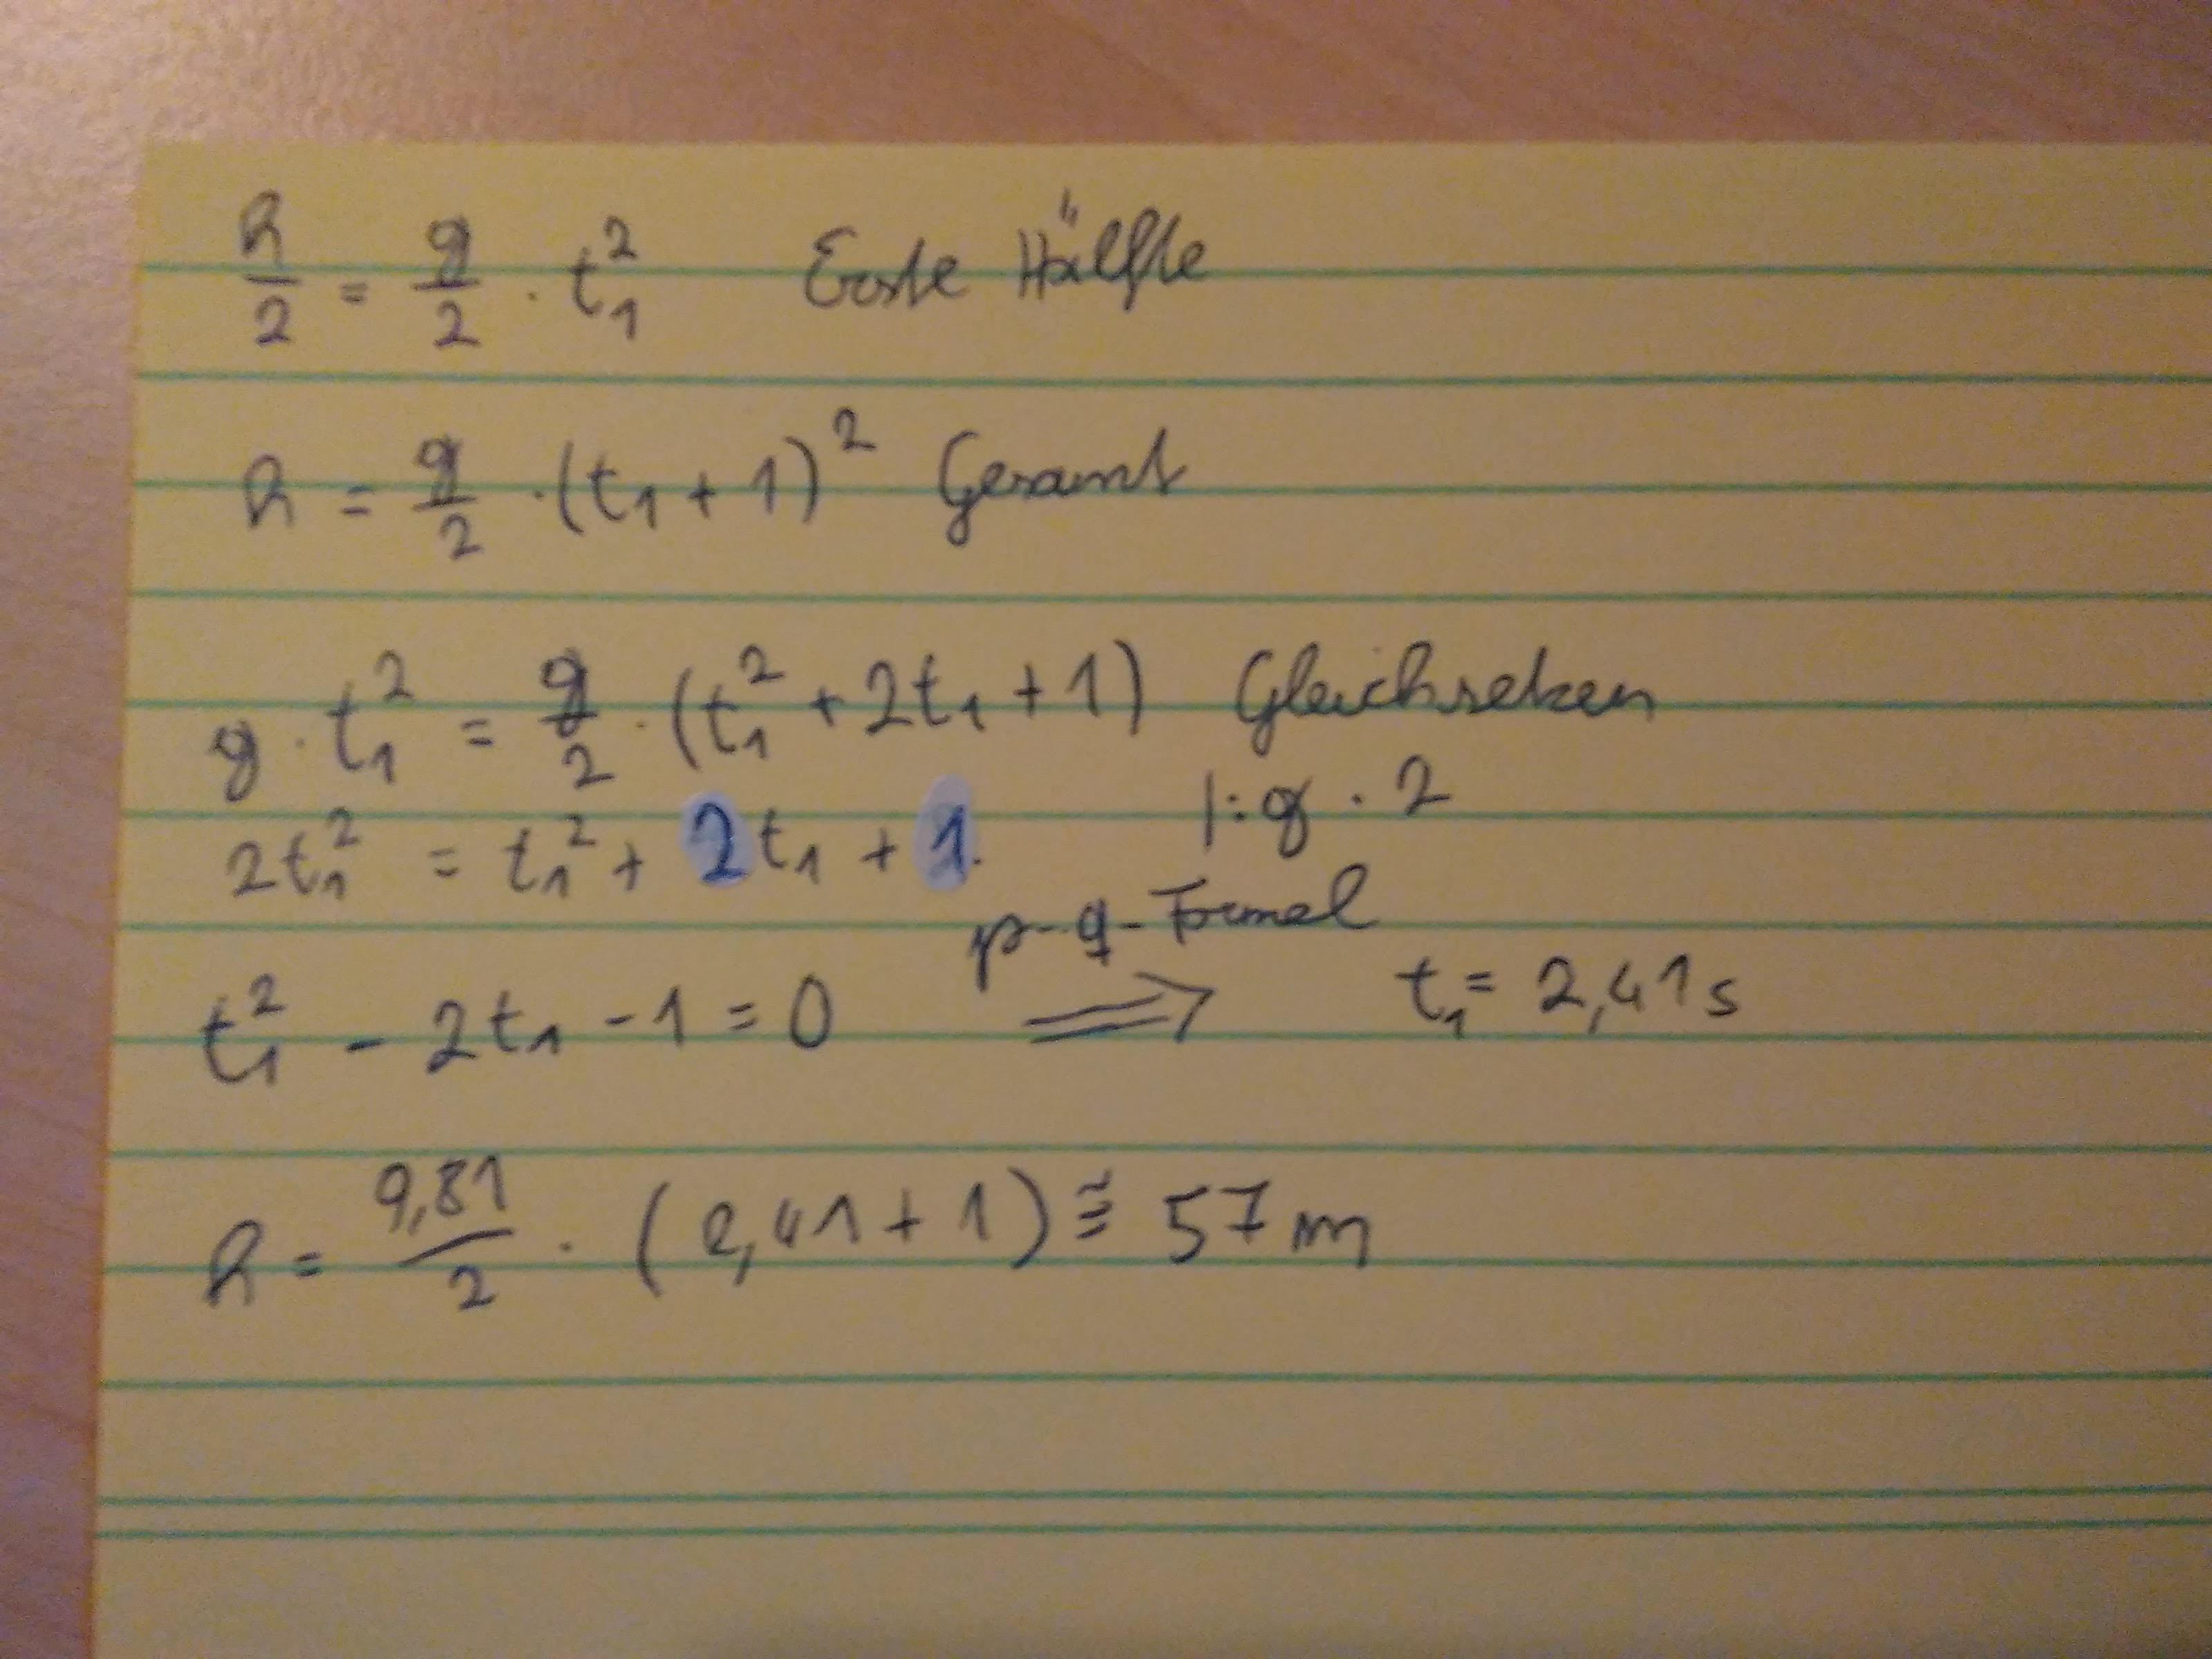 h/2 = g/2 · t₁² Erste Hälfte
h = g/2 · (t₁ + 1)² Gesamt
g · t₁² = g/2 · (t₁² + 2t₁ + 1) Gleichsetzen
|:g · 2
2t₁² = t₁² + 2t₁ + 1.
p-q-Formel
t₁² - 2t₁ - 1 = 0 ⟹ t₁ = 2,41s
h = 9,81/2 · (2,41 + 1) ≅ 57m